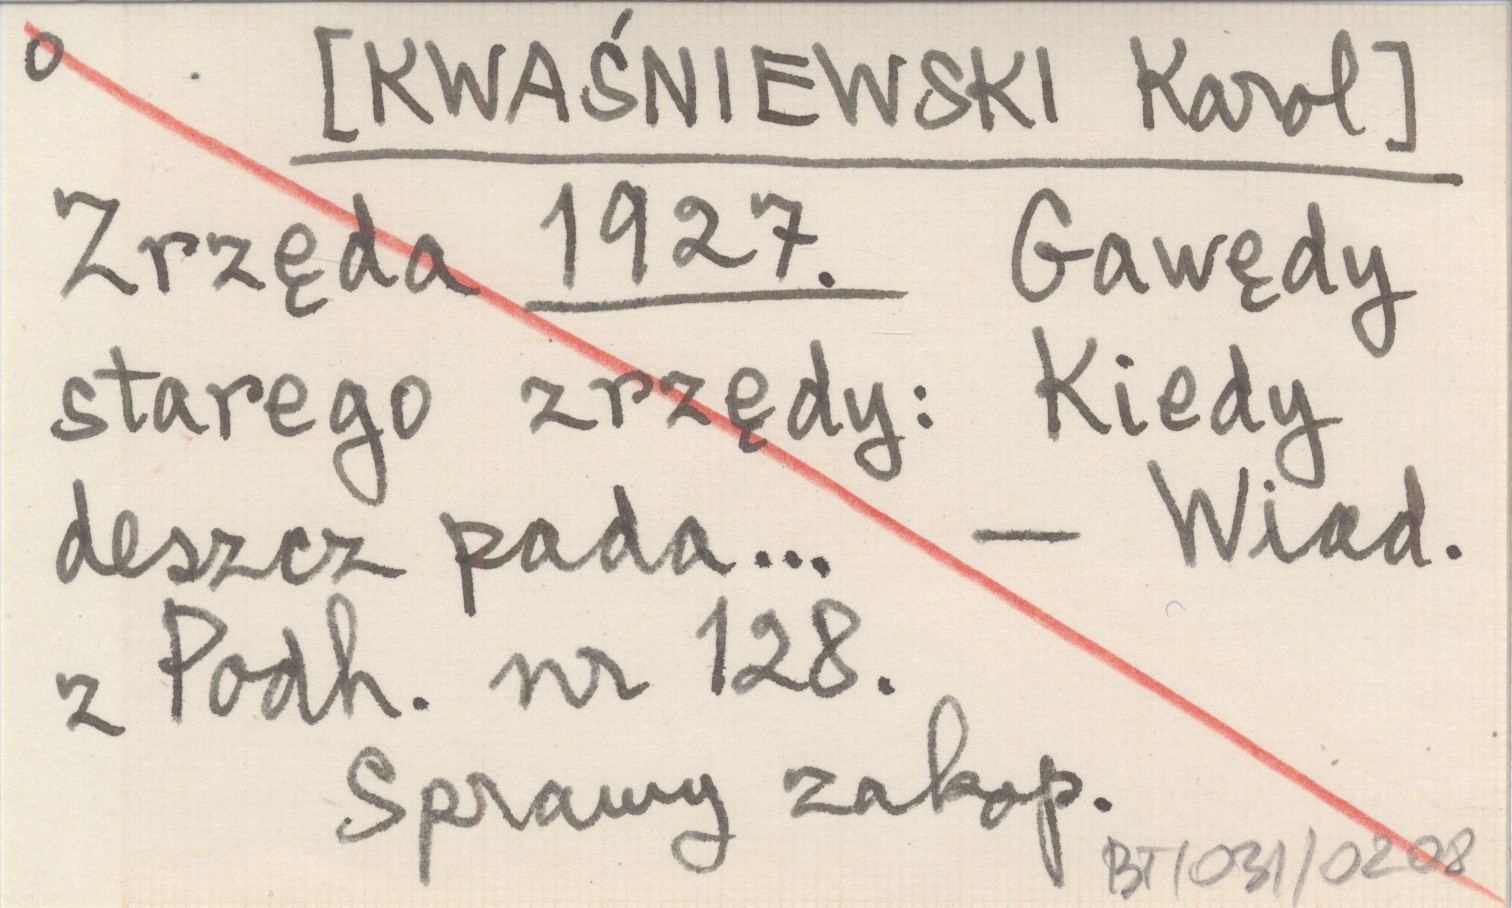 o [KWAŚNIEWSKI Karol]
Zrzęda 1927. Gawędy
starego zrzędy: Kiedy
deszcz pada... — Wiad.
z Podh. nr 128.
Sprawy zakop.
BT/031/0208